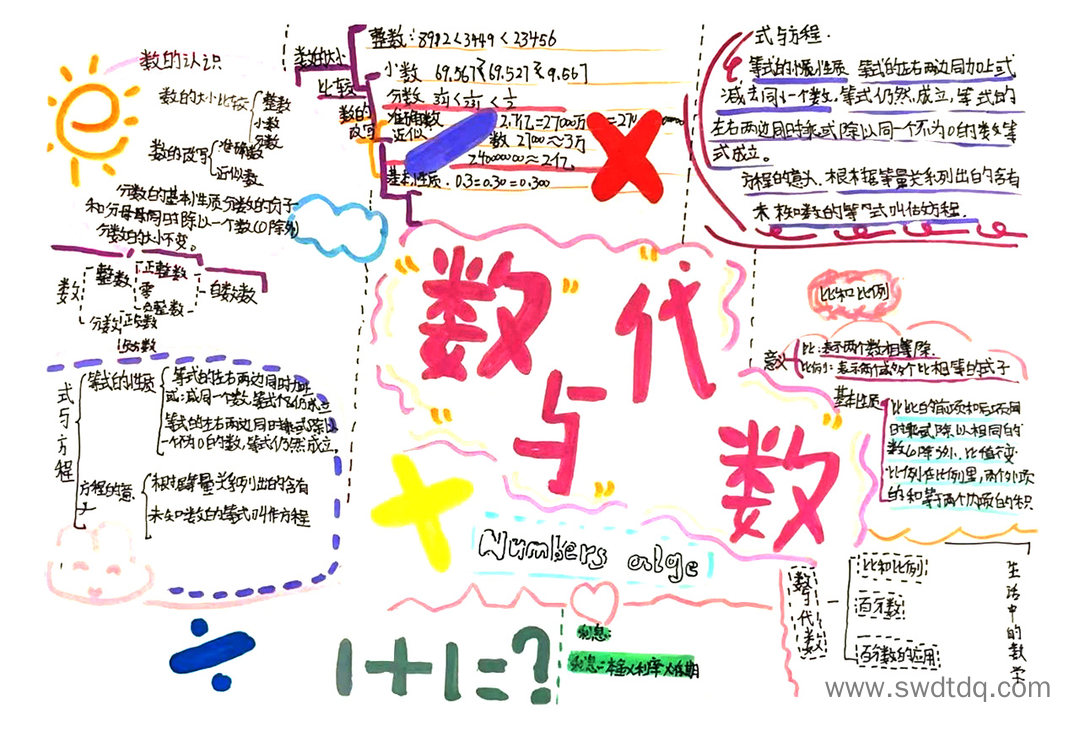 数的认识
数的大小比较
整数
小数
分数
数的改写
准确数
近似数
分数的基本性质分数的分子
和分母同时除以一个数(0除外)
分数的大小不变。
数
整数
正整数
零
负整数
自数数
分数
正分数
式与方程
等式的性质
等式的左右两边同时加上
或减同一个数,等式仍成立
等式的左右两边同时乘或除以
一个不为0的数,等式仍然成立。
方程的意
根据等量关系列出的含有
未知数的等式叫作方程
数的大小
比较
数的
改写
整数:8912<3449<23456
小数
分数
准确数
2.7亿=27000万
近似
数
≈3万
≈2亿
基本性质.0.3=0.30=0.300
式与方程.
等式的性质 等式的左右两边同加上或
减去同一个数,等式仍然成立,等式的
左右两边同时乘或除以同一个不为0的数等
式成立。
根据等量关系列出的含有
未知数的等式叫做方程.
数与代数
Numbers alge
比和比例
意义
比:表示两个数相等除.
比例:表示两个或多个比相等的式子
基本性质
比比的前项和后项同
时乘或除以相同的
数(0除外.比值不变
比例在比例里,两个外项
的和等两个内项的积
数与代数
比和比例
百分数
百分数的应用
生活中的数学
1+1=?
利息:
利息=本金×利率×存期
www.swdtdq.com